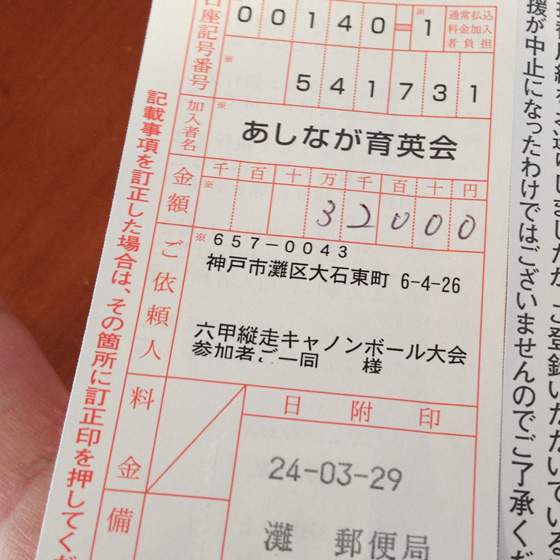 口座記号番号
00140-1
通常払込
料金加入
者負担
541731
加入者名
あしなが育英会
金額
千百十万千百十円
32000
ご依頼人
657-0043
神戸市灘区大石東町 6-4-26
六甲縦走キャノンボール大会
参加者ご一同 様
料金
日附印
24-03-29
灘 郵便局
備
記載事項を訂正した場合は、その箇所に訂正印を押してくだ
援が中止になったわけではございませんのでご了承くだ